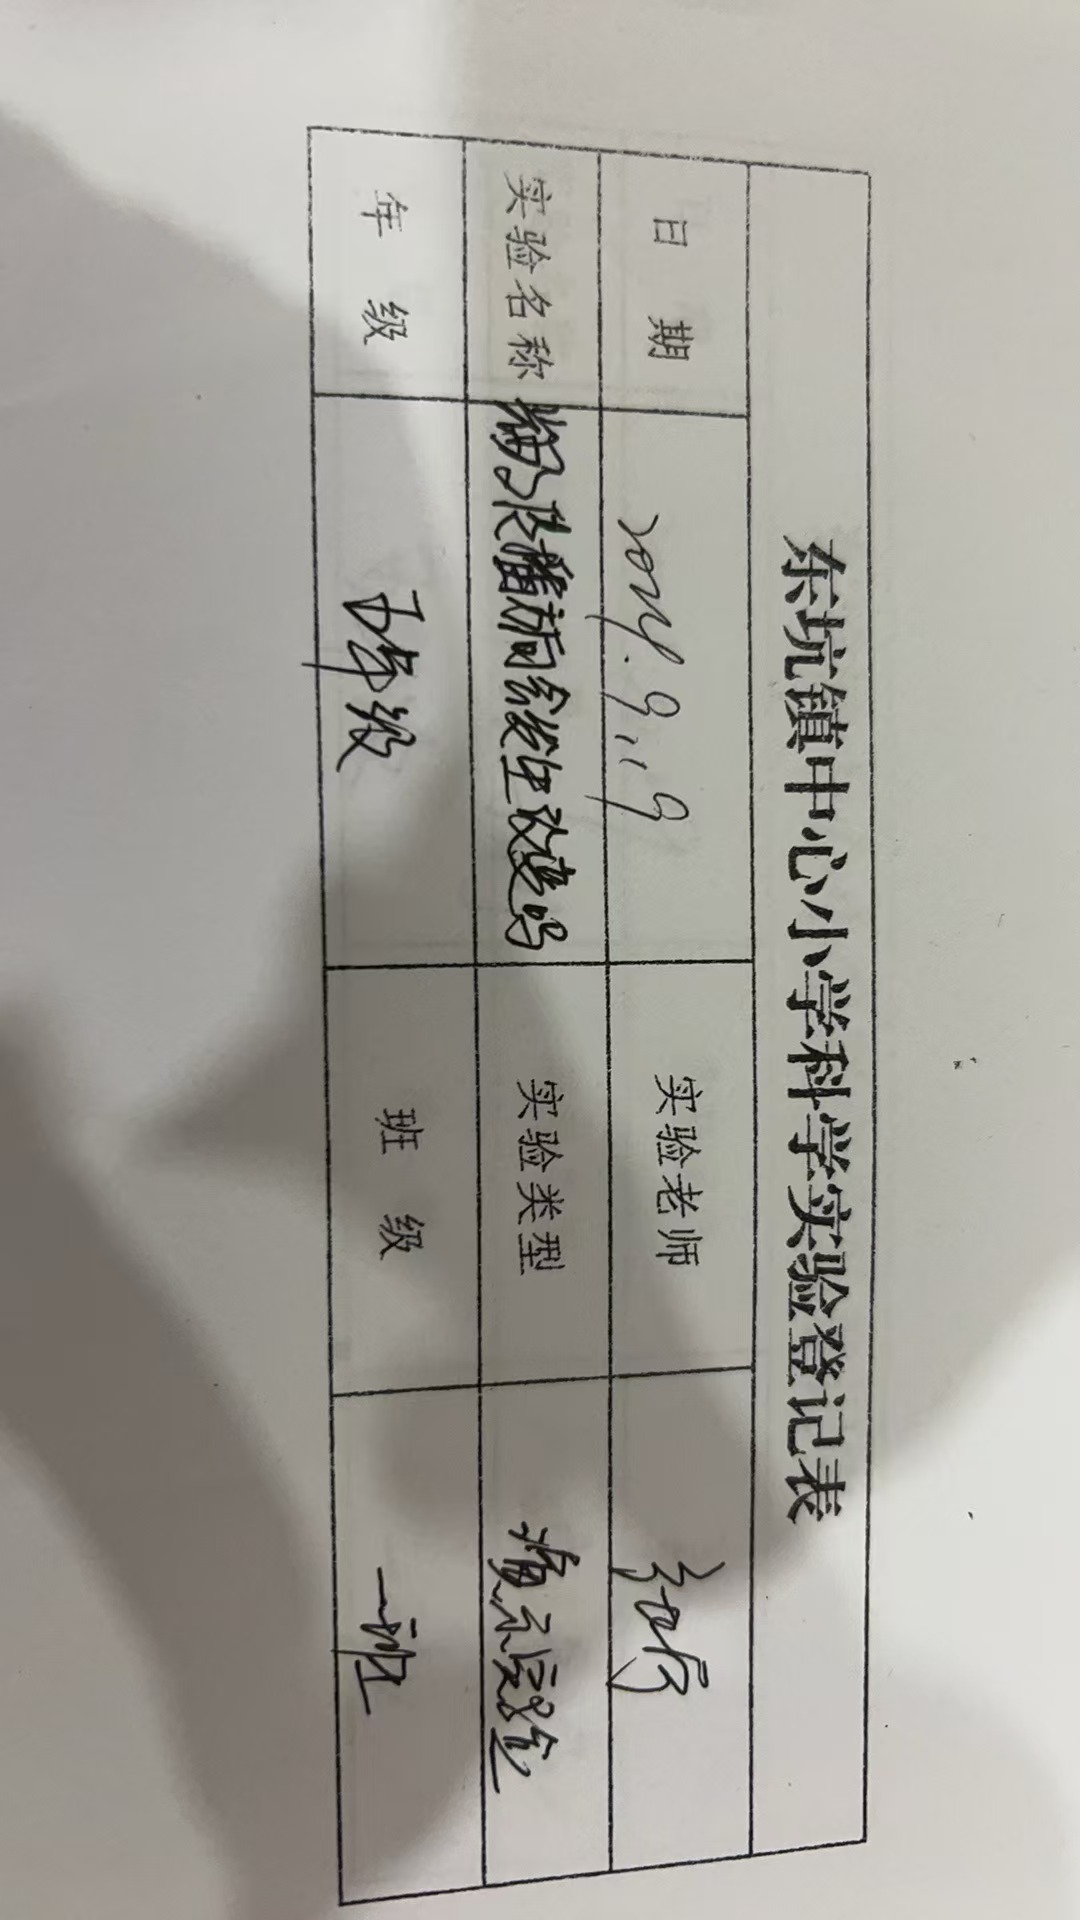 东坑镇中心小学科学实验登记表
日 期 2024.9.19 实验老师
实验名称 光的传播方向会发生改变吗 实验类型 演示实验
年 级 五年级 班 级 一班